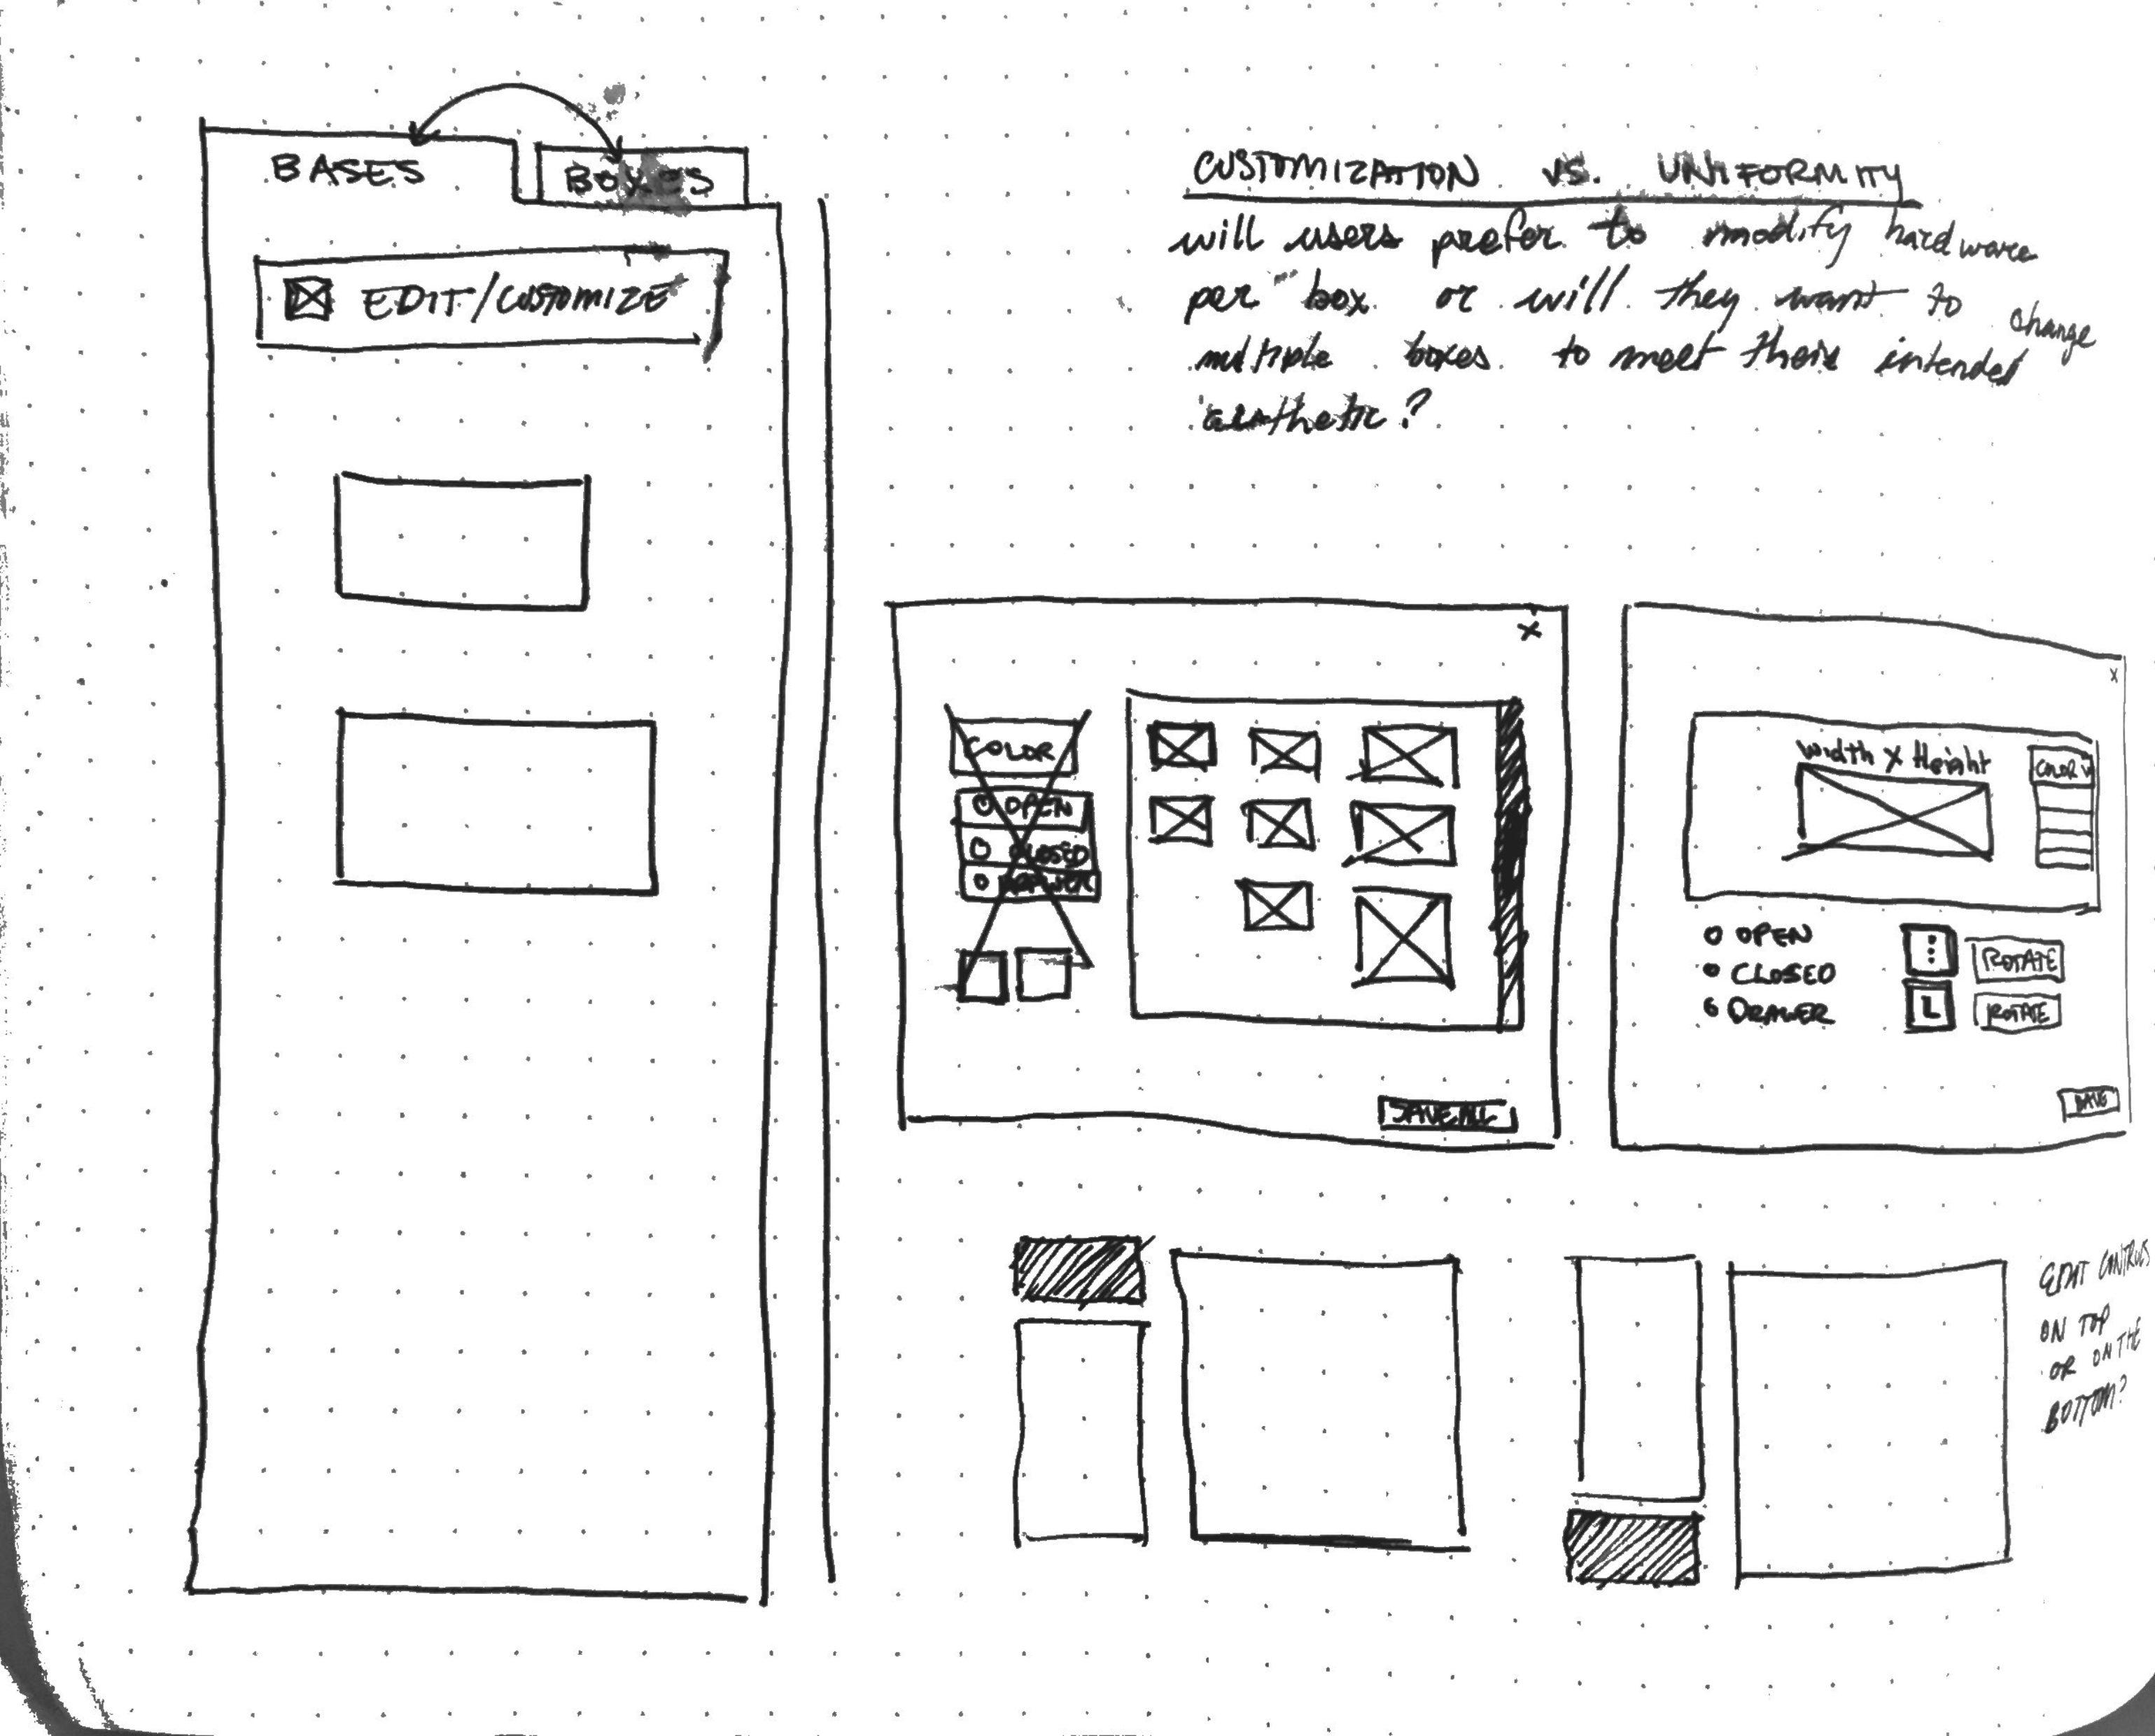 BASES
BOXES
EDIT/CUSTOMIZE
CUSTOMIZATION VS. UNIFORMITY
will users prefer to modify hardware
per box or will they want to change
multiple boxes to meet their intended
aesthetic?
X
COLOR
OPEN
CLOSED
DRAWER
SAVE ALL
X
Width X Height
COLOR V
OPEN
CLOSED
DRAWER
ROTATE
L ROTATE
SAVE
EDIT CONTROLS
ON TOP
OR ON THE
BOTTOM?